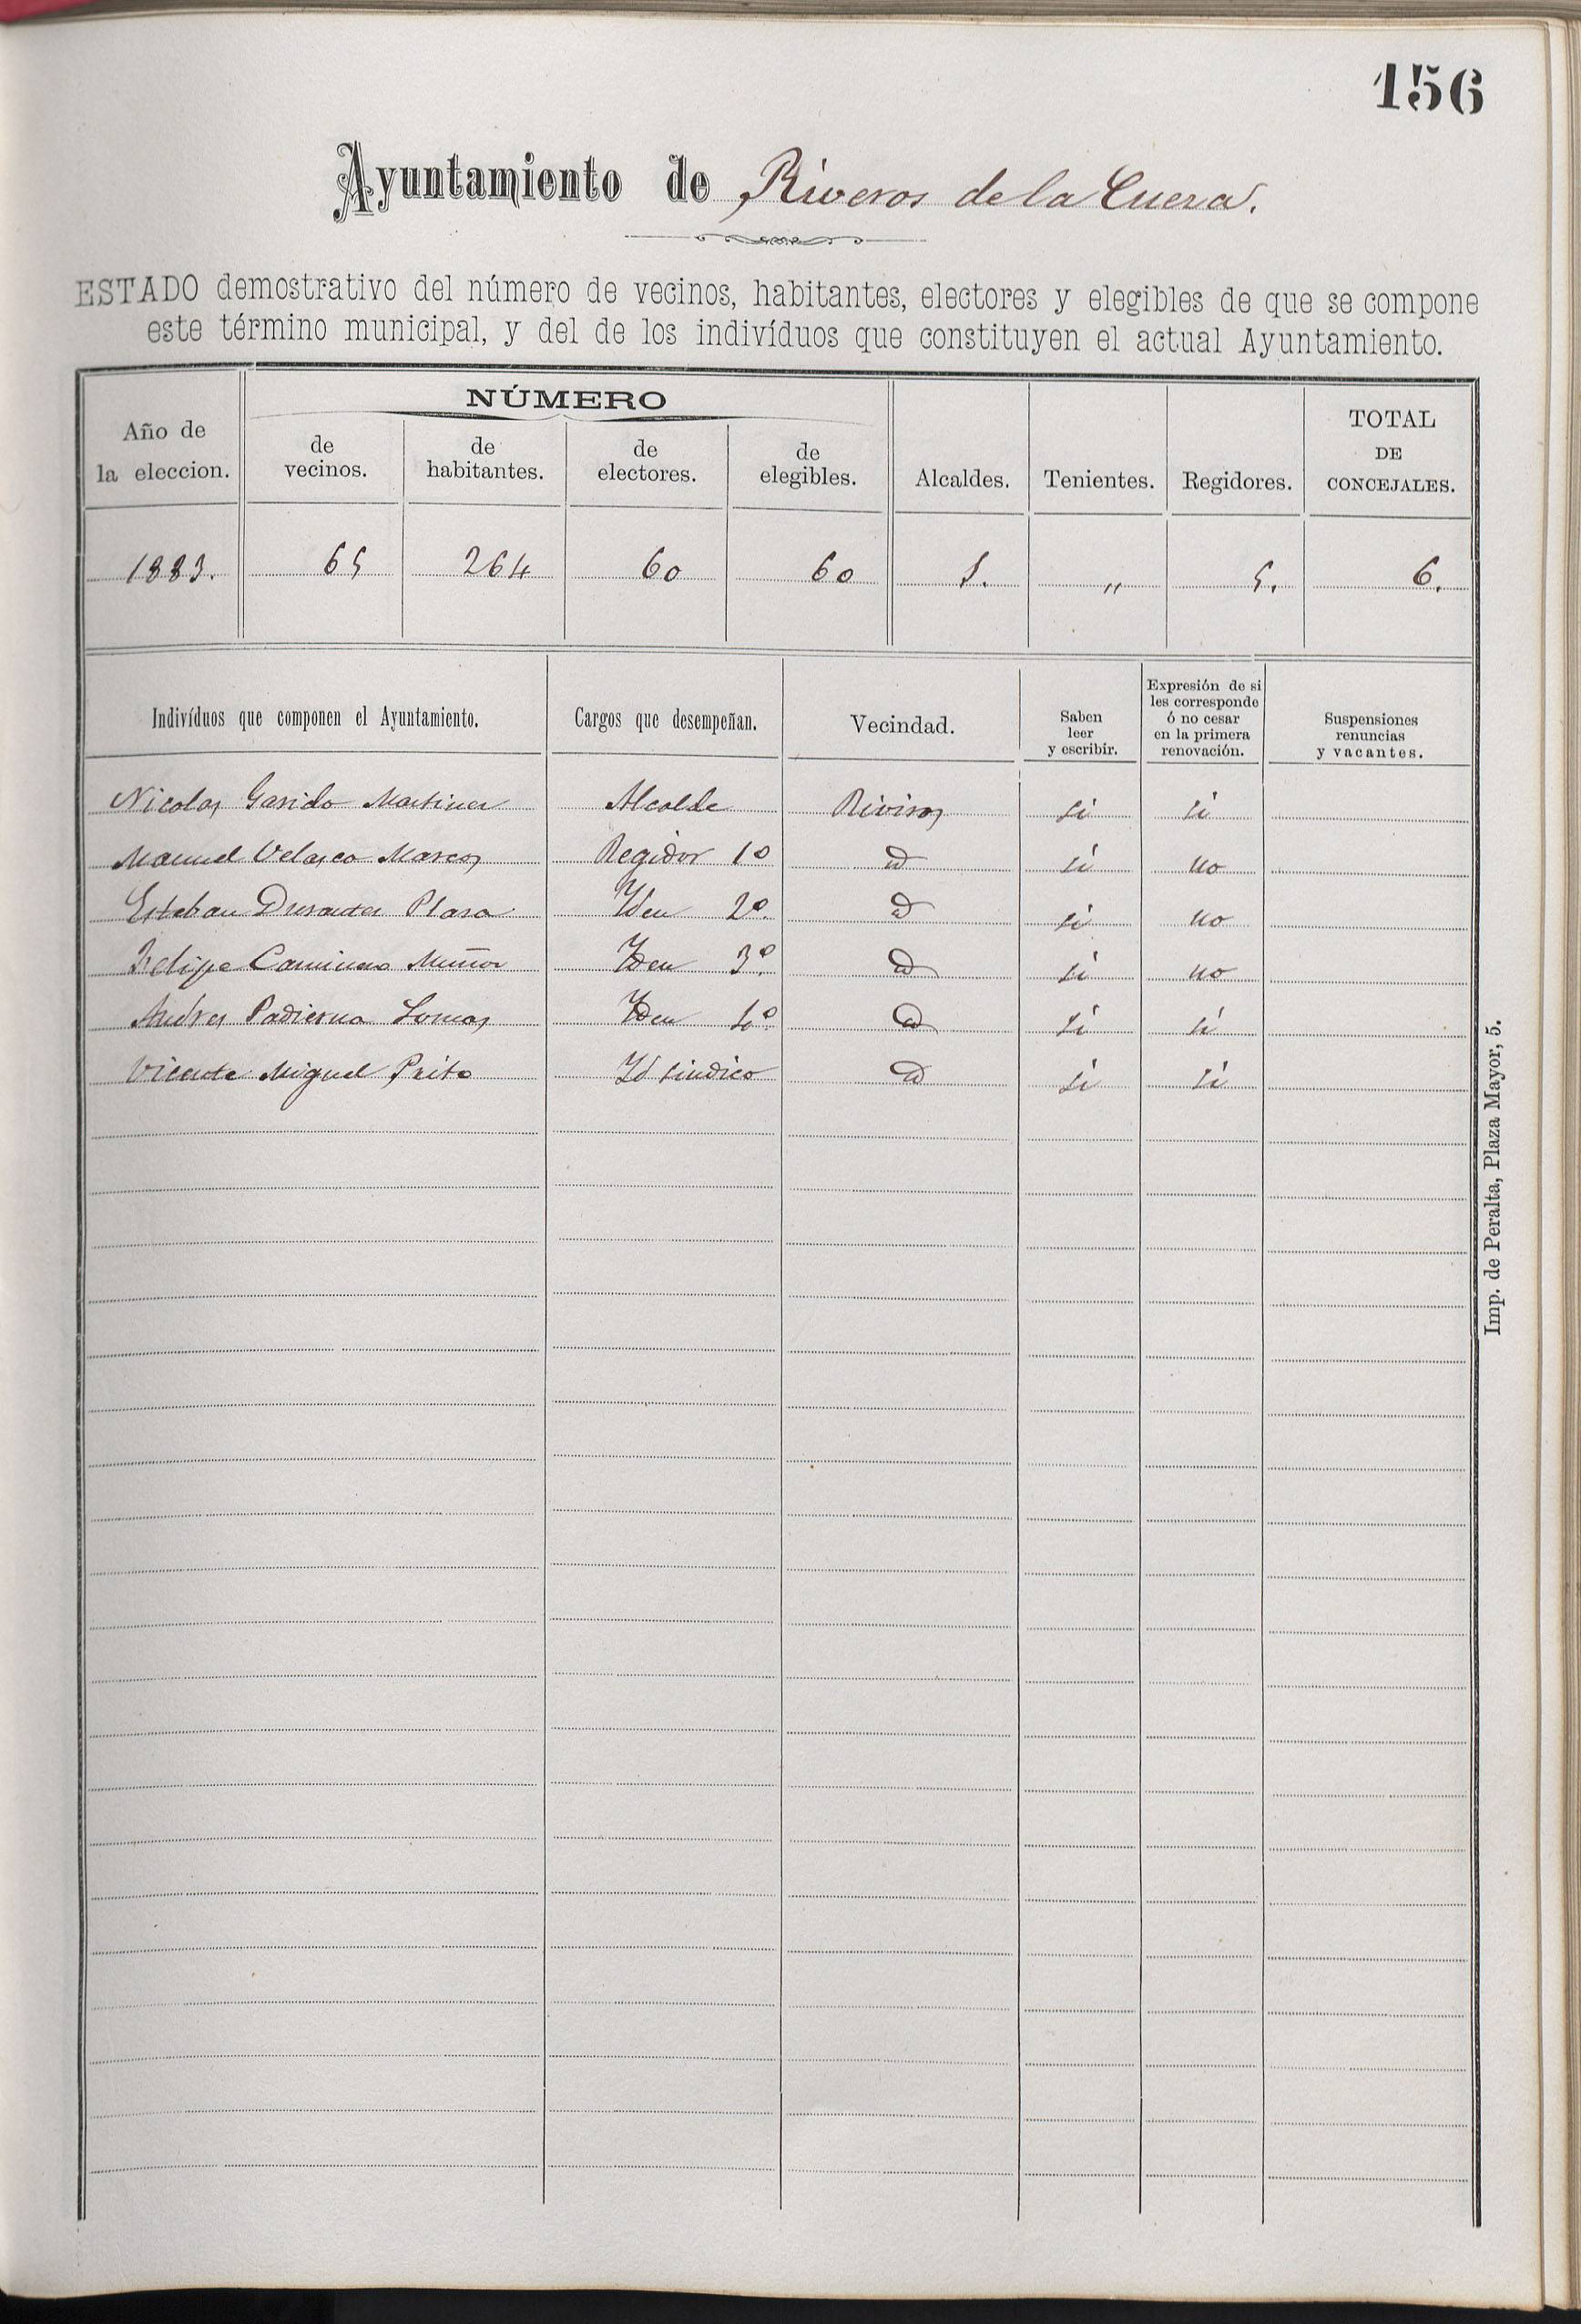 156
Ayuntamiento de Riveros de la Cueza.
ESTADO demostrativo del número de vecinos, habitantes, electores y elegibles de que se compone
este término municipal, y del de los indivíduos que constituyen el actual Ayuntamiento.
Año de la eleccion. NÚMERO de vecinos. de habitantes. de electores. de elegibles. Alcaldes. Tenientes. Regidores. TOTAL DE CONCEJALES.
1883. 65 264 60 60 1. " 5. 6.
Indivíduos que componen el Ayuntamiento. Cargos que desempeñan. Vecindad. Saben leer y escribir. Expresión de si les corresponde ó no cesar en la primera renovación. Suspensiones renuncias y vacantes.
Nicolas Garido Martinez Alcalde Riviros si si
Manuel Velasco Marcos Regidor 1º id si no
Esteban Plaza Iden 2º. id si no
Felipe Caminero Muñoz Iden 3º. id si no
Andres Padierna Lomas Iden 4º. id si si
Vicente Miguel Prito Id sindico id si si
Imp. de Peralta, Plaza Mayor, 5.